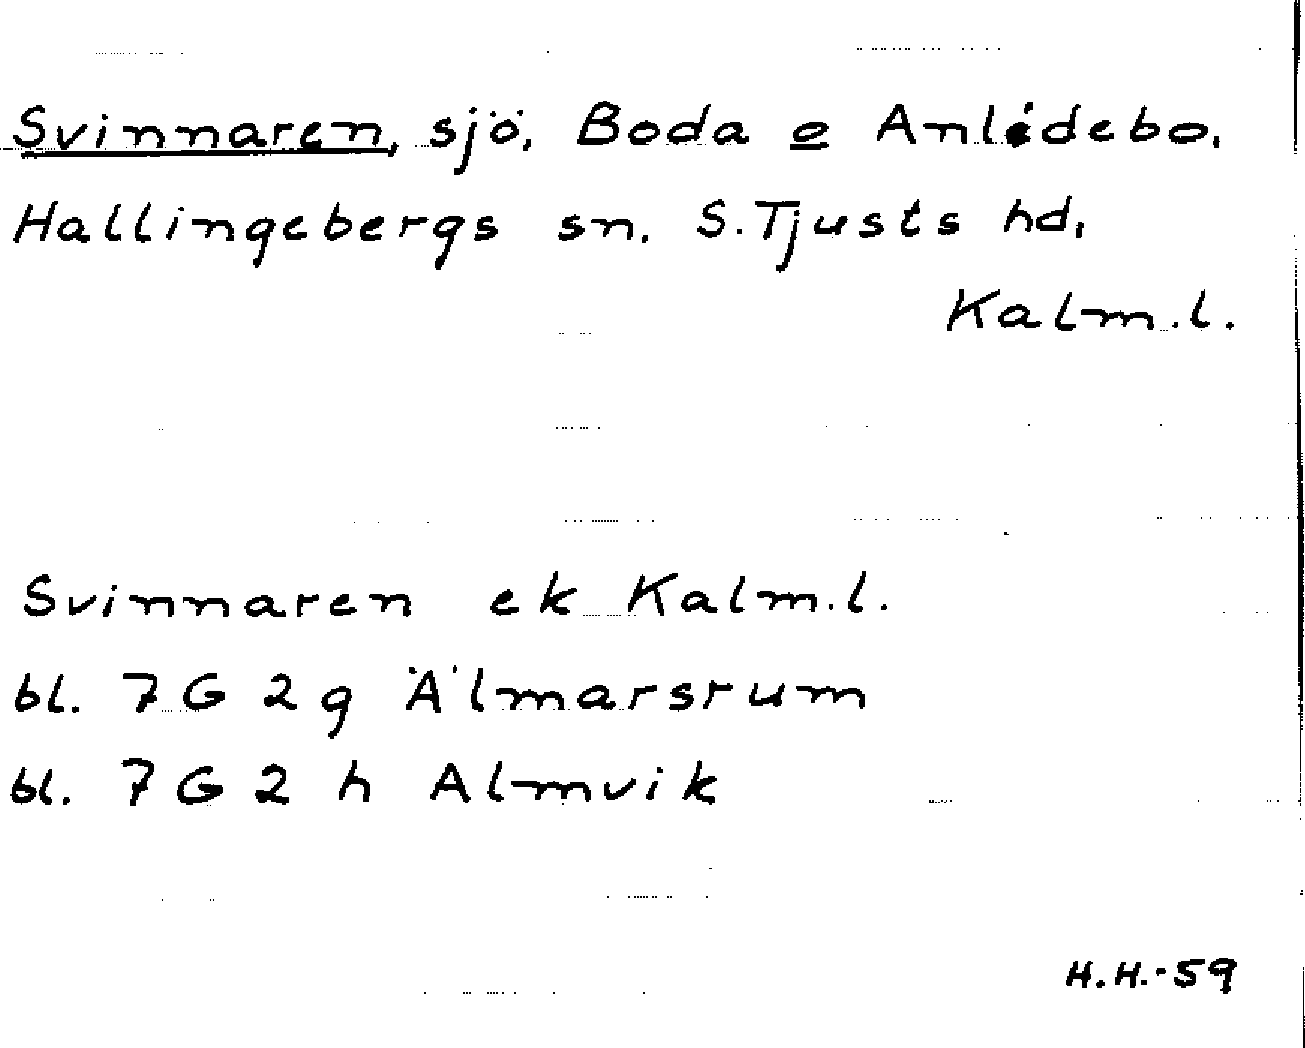 Svinnaren, sjö, Boda o Anlidebo,
Hallingebergs sn. S. Tjusts hd,
Kalm.l.
Svinnaren ek Kalm.l.
bl. 7 G 2 g Älmarsrum
bl. 7 G 2 h Almvik
H.H.-59